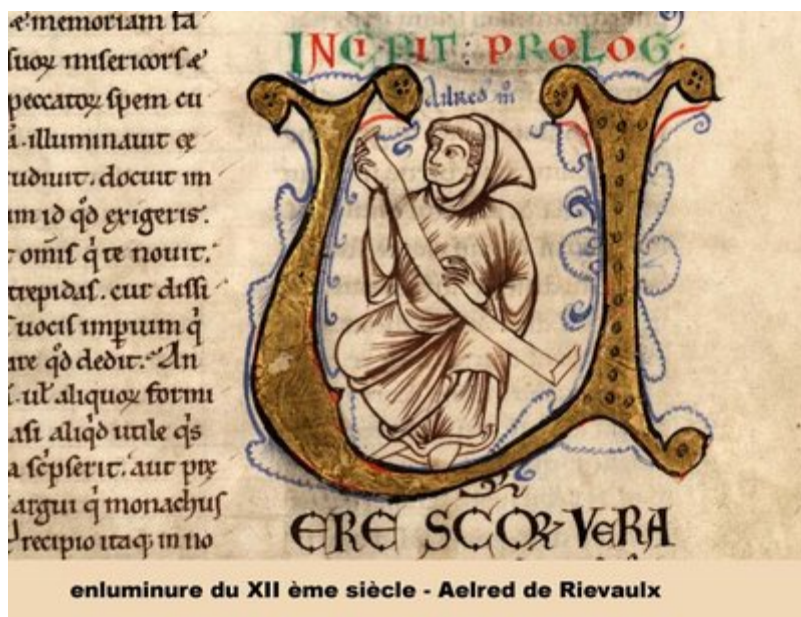 e memoriam fa
suoꝝ misericorſ e
peccatoꝝ ſpem cu
illuminauit
udiuit. docuit im
m id q̊d exigeris.
omīſ q̇ te nouit.
trepidaſ. cur diſſi
uociſ q̇
q̊d dedit. An
aliquoꝝ formi
aſi aliq̊d utile q̄s
a ſcͥpſerit. aut
argui q̇ monachus
recipio itaq; in no
INCIPIT: PROLOG
Ailred
U
ERE SCOꝜ VERA
enluminure du XII ème siècle - Aelred de Rievaulx